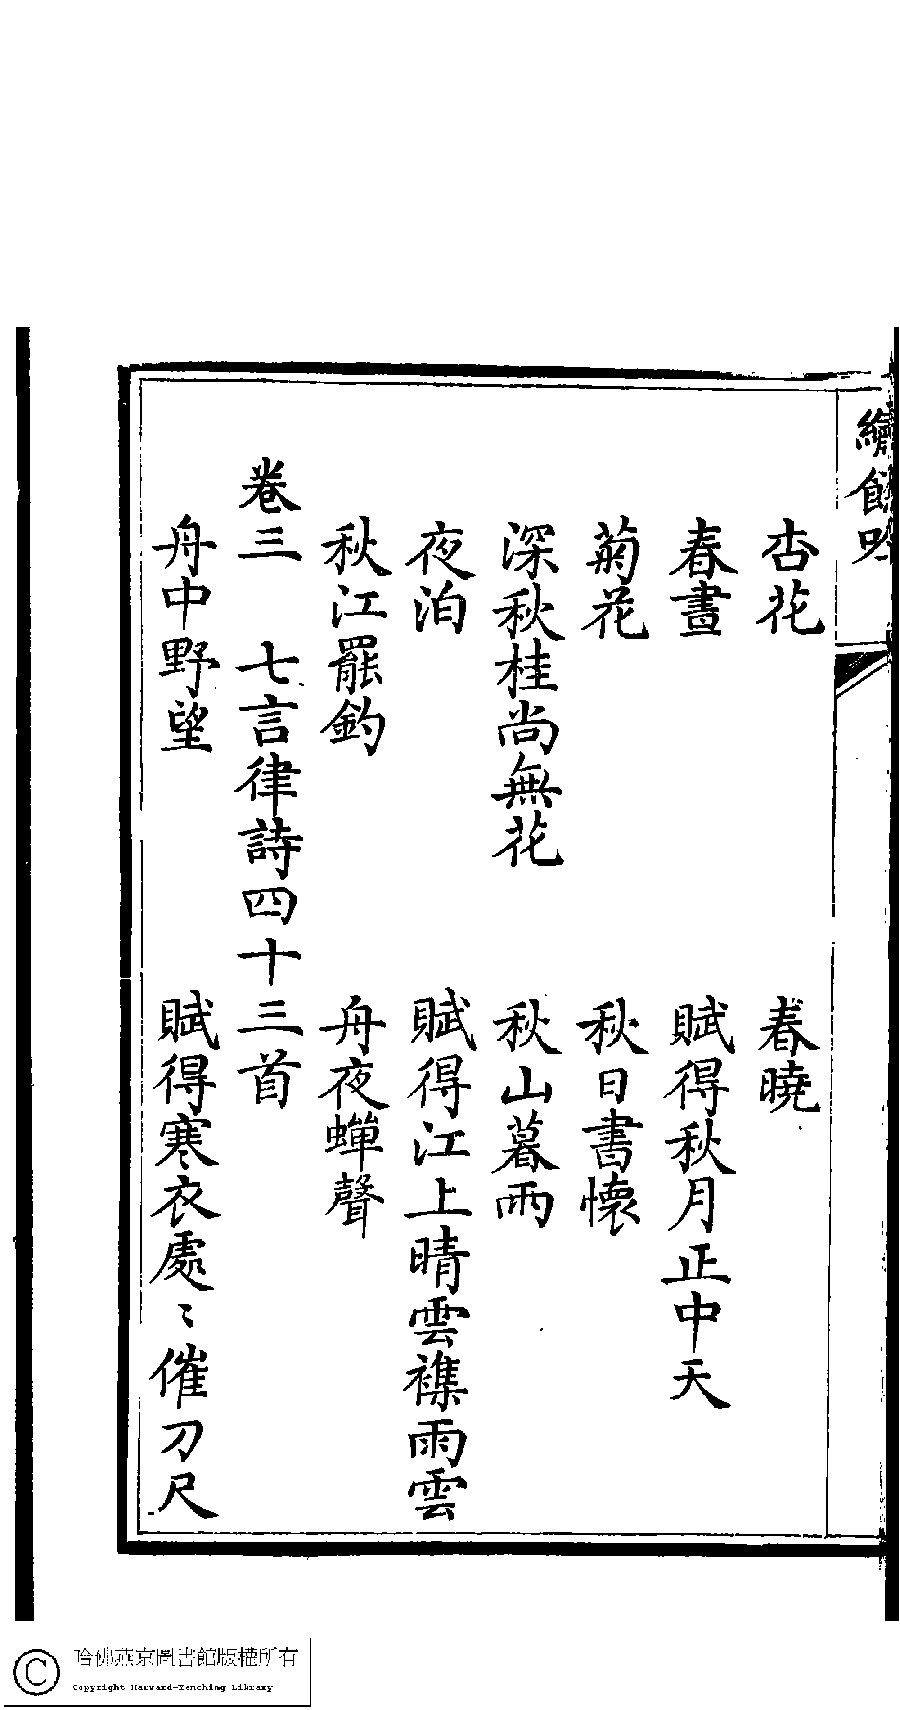 繪餘吟
杏花　春曉
春晝　賦得秋月正中天
菊花　秋日書懷
深秋桂尚無花　秋山暮雨
夜泊　賦得江上晴雲襍雨雲
秋江罷釣　舟夜蟬聲
卷三　七言律詩四十三首
舟中野望　賦得寒衣處〻催刀尺
哈佛燕京圖書館版權所有
Copyright Harvard-Yenching Library